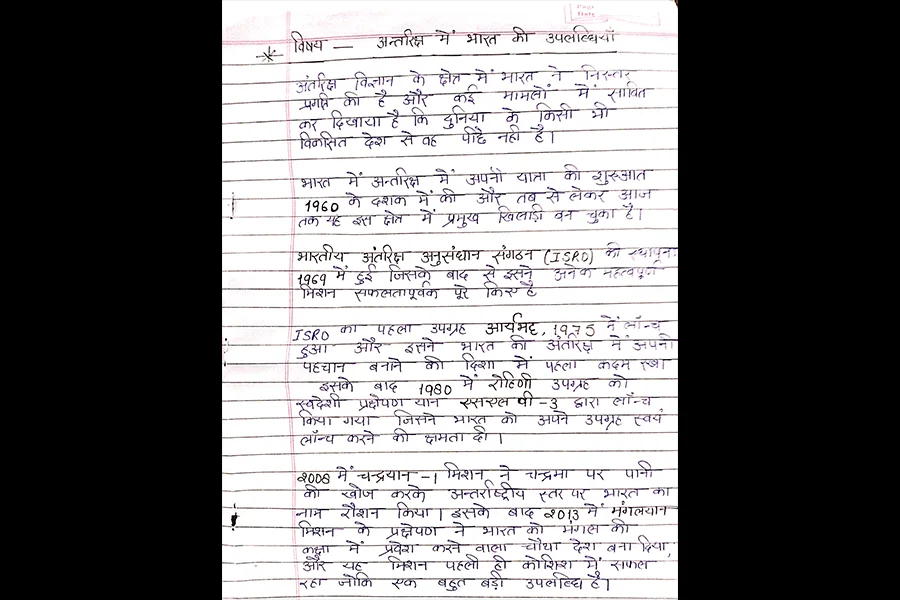 Page
Date
विषय — अन्तरिक्ष में भारत की उपलब्धियाँ
अंतरिक्ष विज्ञान के क्षेत्र में भारत ने निरन्तर
प्रगति की है और कई मामलों में साबित
कर दिखाया है कि दुनिया के किसी भी
विकसित देश से वह पीछे नही है।
भारत में अन्तरिक्ष में अपनी यात्रा की शुरुआत
1960 के दशक में की और तब से लेकर आज
तक यह इस क्षेत्र में प्रमुख खिलाड़ी बन चुका है।
भारतीय अंतरिक्ष अनुसंधान संगठन (ISRO) की स्थापना
1969 में हुई जिसके बाद से इसने अनेक महत्वपूर्ण
मिशन सफलतापूर्वक पूरे किए है
ISRO का पहला उपग्रह आर्यभट्ट, 1975 में लॉन्च
हुआ और इसने भारत की अंतरिक्ष में अपनी
पहचान बनाने की दिशा में पहला कदम रखा
इसके बाद 1980 में रोहिणी उपग्रह को
स्वदेशी प्रक्षेपण यान एसएल वी -3 द्वारा लॉन्च
किया गया जिसने भारत को अपने उपग्रह स्वयं
लॉन्च करने की क्षमता दी।
2008 में चन्द्रयान -1 मिशन ने चन्द्रमा पर पानी
की खोज करके अन्तर्राष्ट्रीय स्तर पर भारत का
नाम रौशन किया। इसके बाद 2013 में मंगलयान
मिशन के प्रक्षेपण ने भारत को मंगल की
कक्षा में प्रवेश करने वाला चौथा देश बना दिया,
और यह मिशन पहली ही कोशिश में सफल
रहा जोकि एक बहुत बड़ी उपलब्धि है।